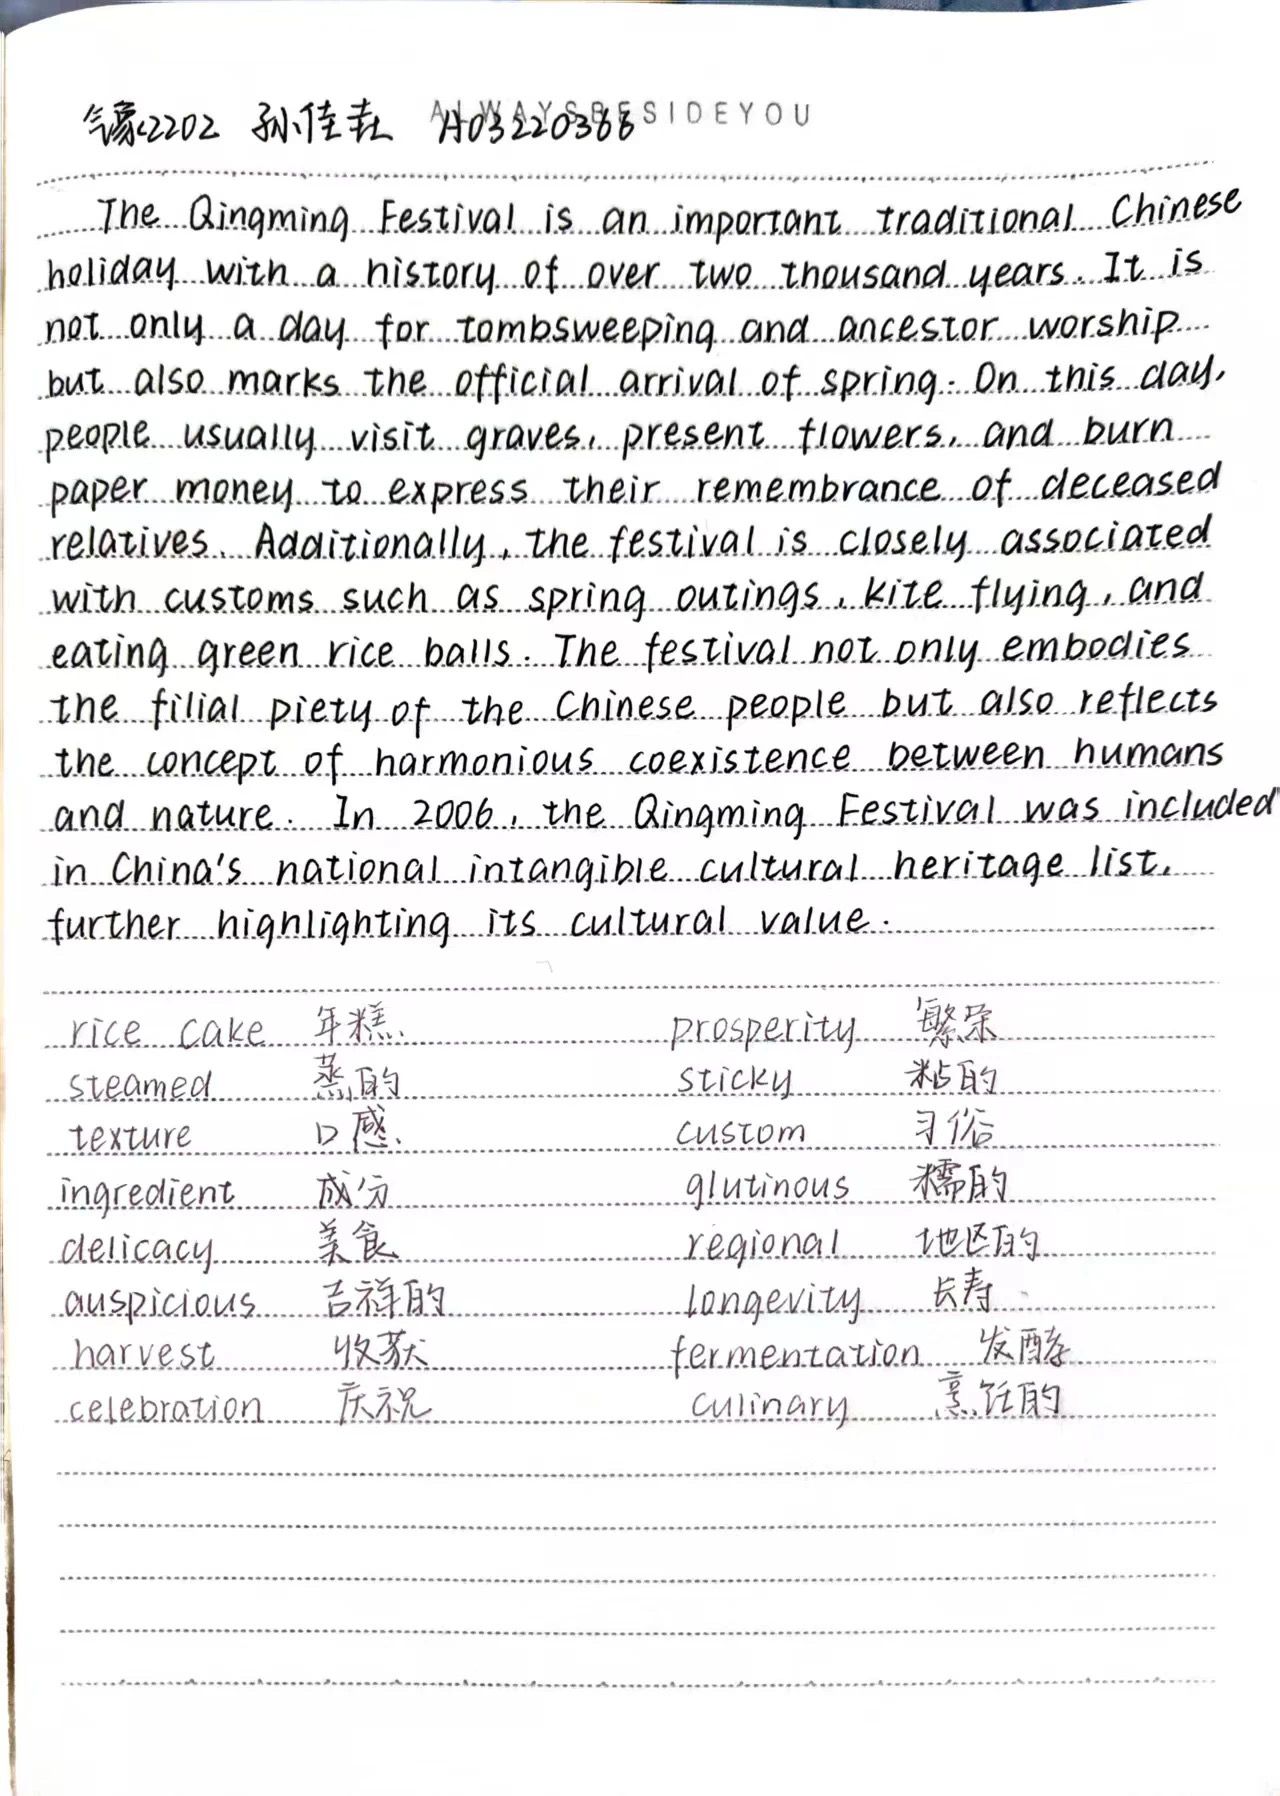 ALWAYSBESIDEYOU
气象2202 孙佳 A03220388
The Qingming Festival is an important traditional Chinese
holiday with a history of over two thousand years. It is
not only a day for tombsweeping and ancestor worship
but also marks the official arrival of spring. On this day,
people usually visit graves, present flowers, and burn
paper money to express their remembrance of deceased
relatives. Additionally, the festival is closely associated
with customs such as spring outings, kite flying, and
eating green rice balls. The festival not only embodies
the filial piety of the Chinese people but also reflects
the concept of harmonious coexistence between humans
and nature. In 2006, the Qingming Festival was included
in China's national intangible cultural heritage list,
further highlighting its cultural value.
rice cake 年糕 prosperity 繁荣
steamed 蒸的 sticky 粘的
texture 口感 custom 习俗
ingredient 成分 glutinous 糯的
delicacy 美食 regional 地区的
auspicious 吉祥的 longevity 长寿
harvest 收获 fermentation 发酵
celebration 庆祝 culinary 烹饪的